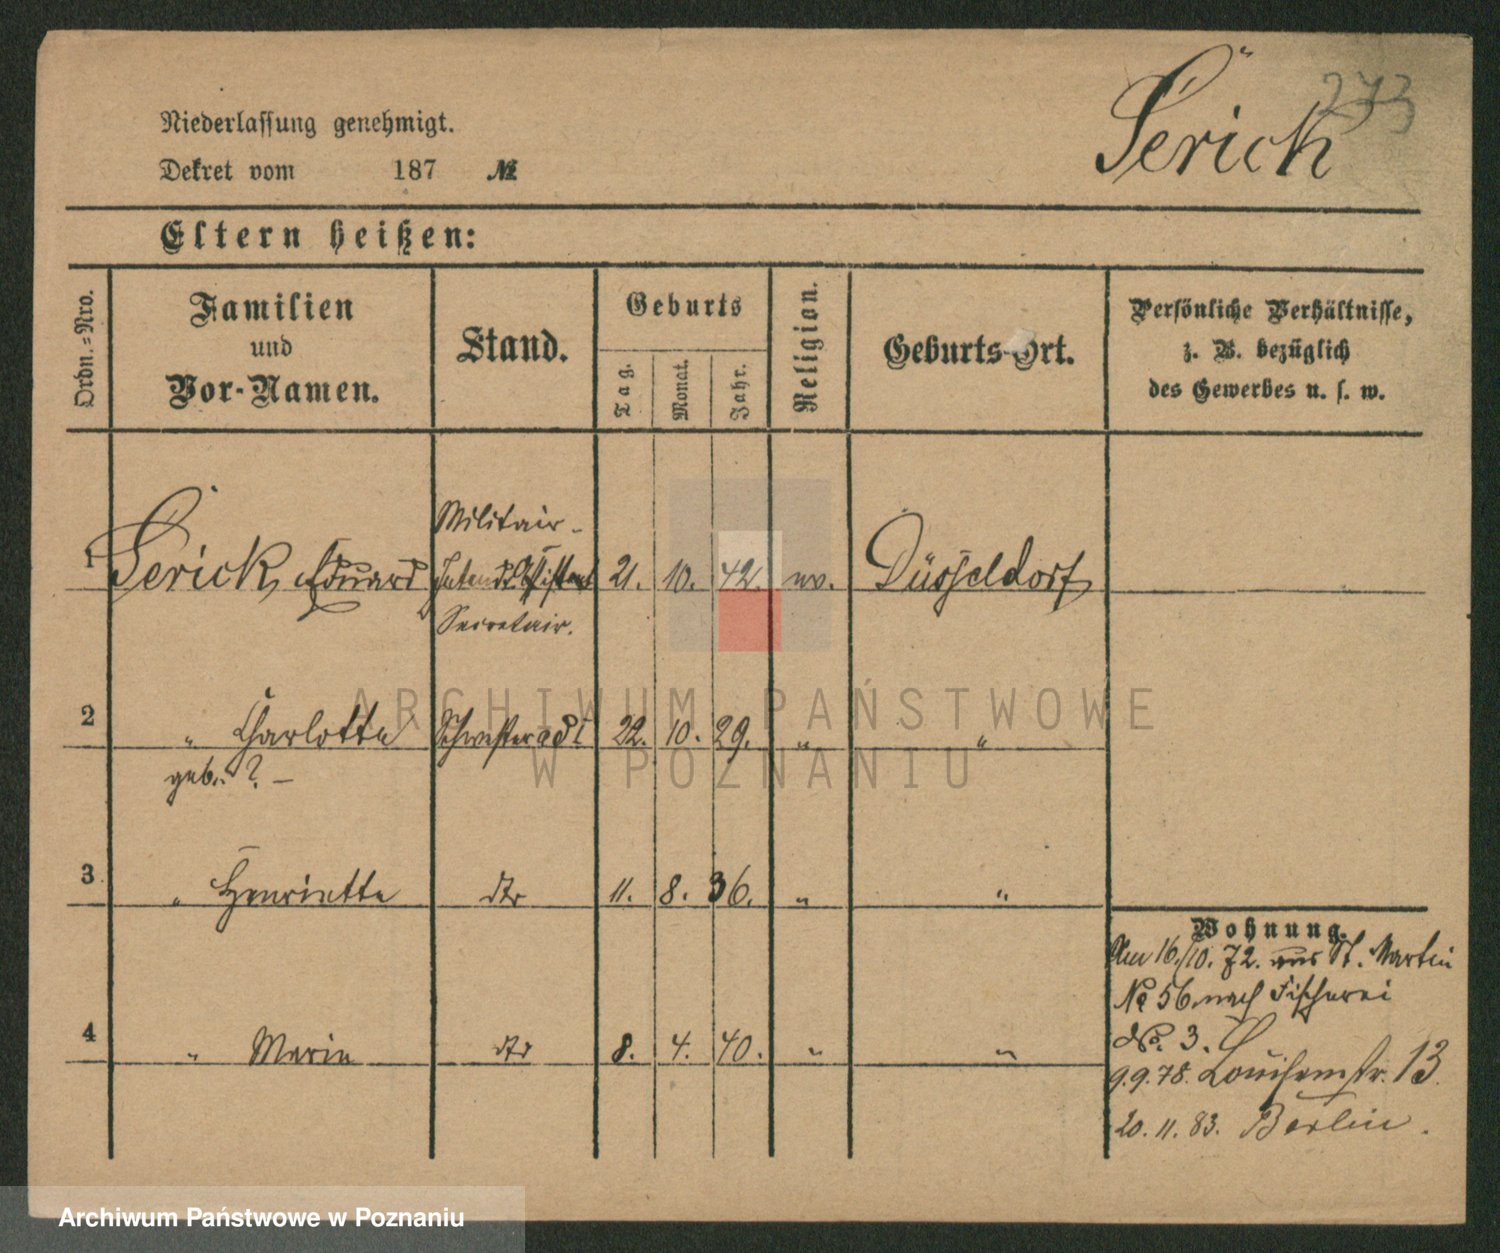 273
Serick
Niederlassung genehmigt.
Dekret vom 187 №
Eltern heißen:
Ordn.-Nro.
Familien
und
Vor-Namen.
Stand.
Geburts
Tag.
Monat.
Jahr.
Religion.
Geburts-Ort.
Persönliche Verhältnisse,
z. B. bezüglich
des Gewerbes u. s. w.
Militair-
1 Serick, Eduard Intend. Assistent 21. 10. 42. ev. Düsseldorf
Secretair.
2 " Charlotte Schwester ad 1 22. 10. 29. " "
geb. ? —
3 " Henriette dto 11. 8. 36. " "
4 " Marie dto 8. 4. 40. " "
Wohnung.
Am 16./10. 72. aus St. Martin
No 56 nach Fischerei
No. 3.
9.9.78. Louisenstr. 13.
20. 11. 83. Berlin.
ARCHIWUM PAŃSTWOWE
W POZNANIU
Archiwum Państwowe w Poznaniu